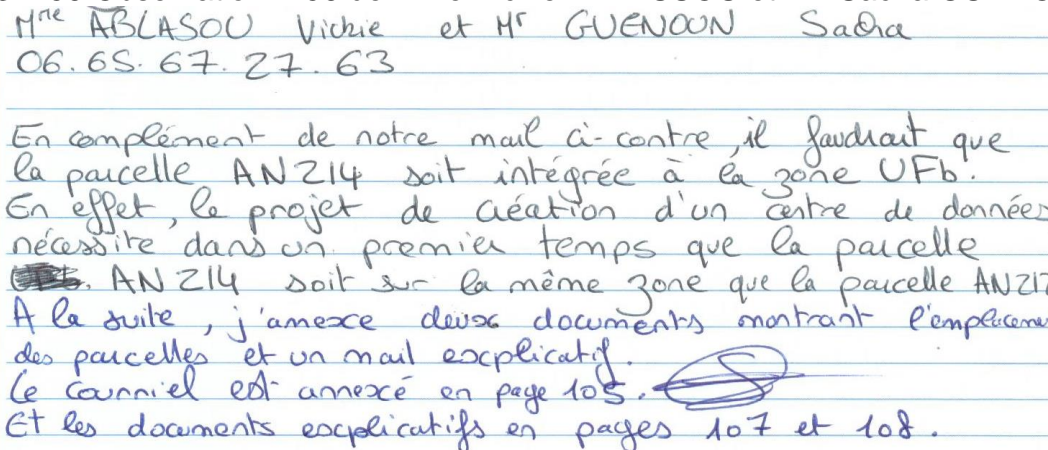 Mme ABLASOU Vickie et Mr GUENOUN Sacha
06.65.67.27.63
En complément de notre mail ci-contre, il faudrait que
la parcelle AN214 soit intégrée à la zone UFb.
En effet, le projet de création d'un centre de données
nécessite dans un premier temps que la parcelle
AN 214 soit sur la même zone que la parcelle AN217
A la suite, j'annexe deux documents montrant l'emplaceme
des parcelles et un mail explicatif.
Le courriel est annexé en page 105.
Et les documents explicatifs en pages 107 et 108.